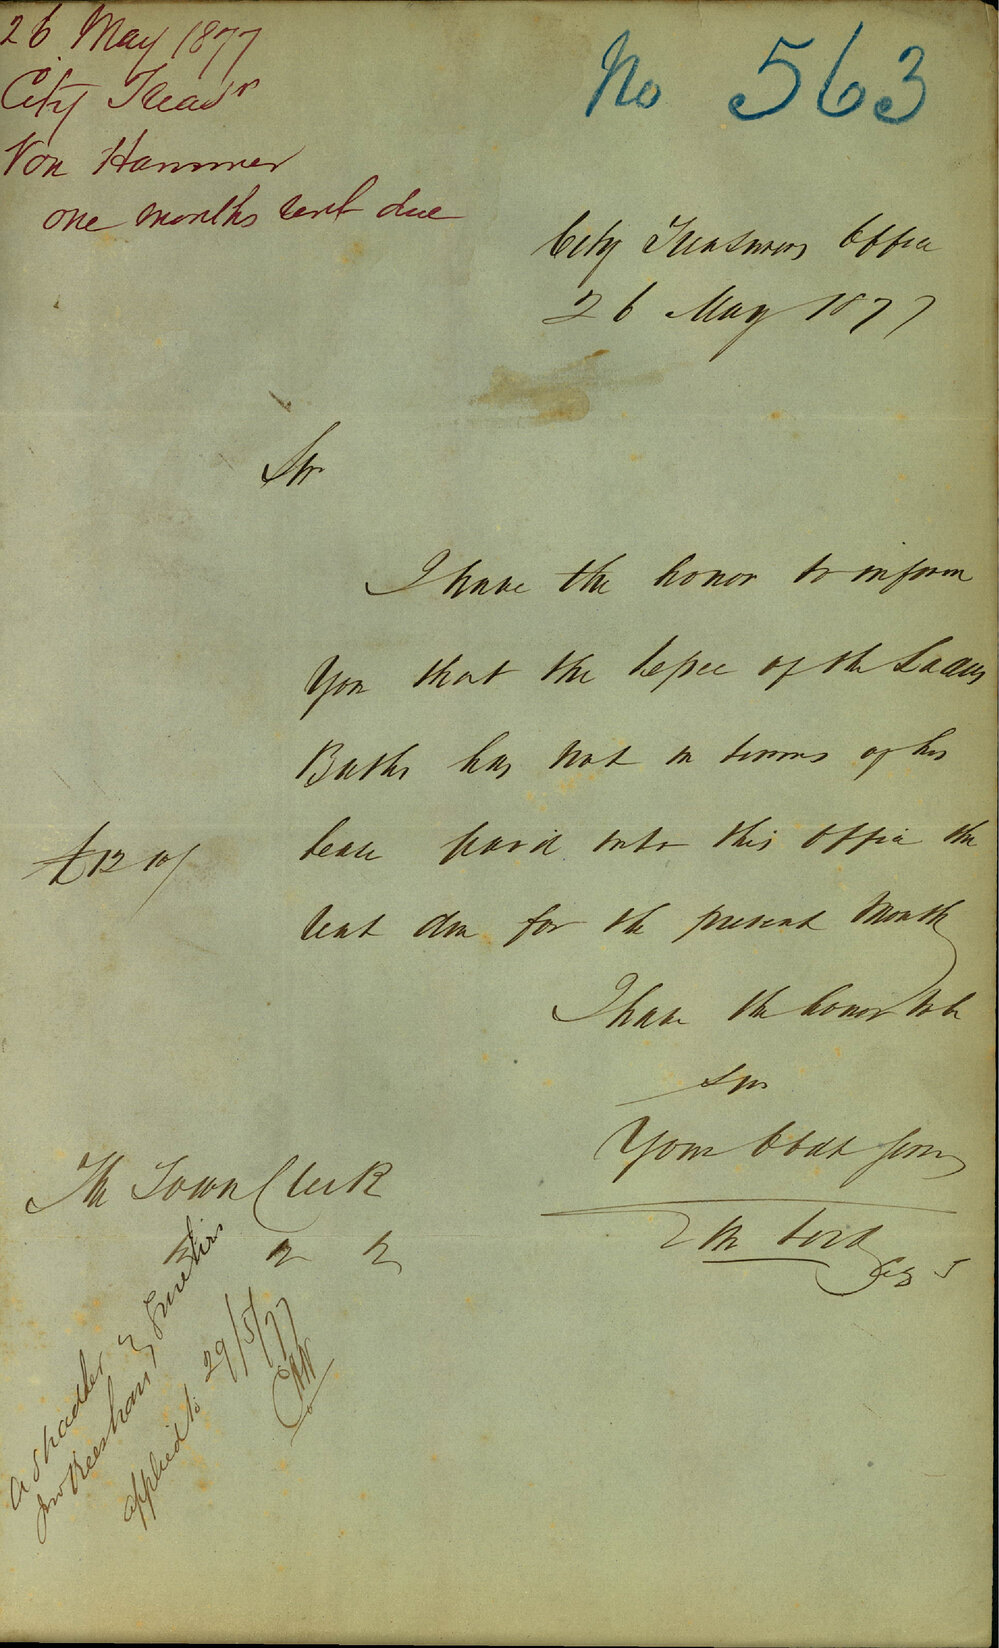 26 May 1877
City Treasr
Von Hammer
one months rent due
No 563
City Treasurers Office
26 May 1877
Sir
I have the honor to inform
You that the lessee of the Ladies
Baths has not in terms of his
lease paid into this Office the
£12 10/
rent due for the present Month
I have the honor to be
Sir
Your Obdt Serv
The Town Clerk
A Shadler &
Jno Keeshan Sureties
applied to 29/5/77